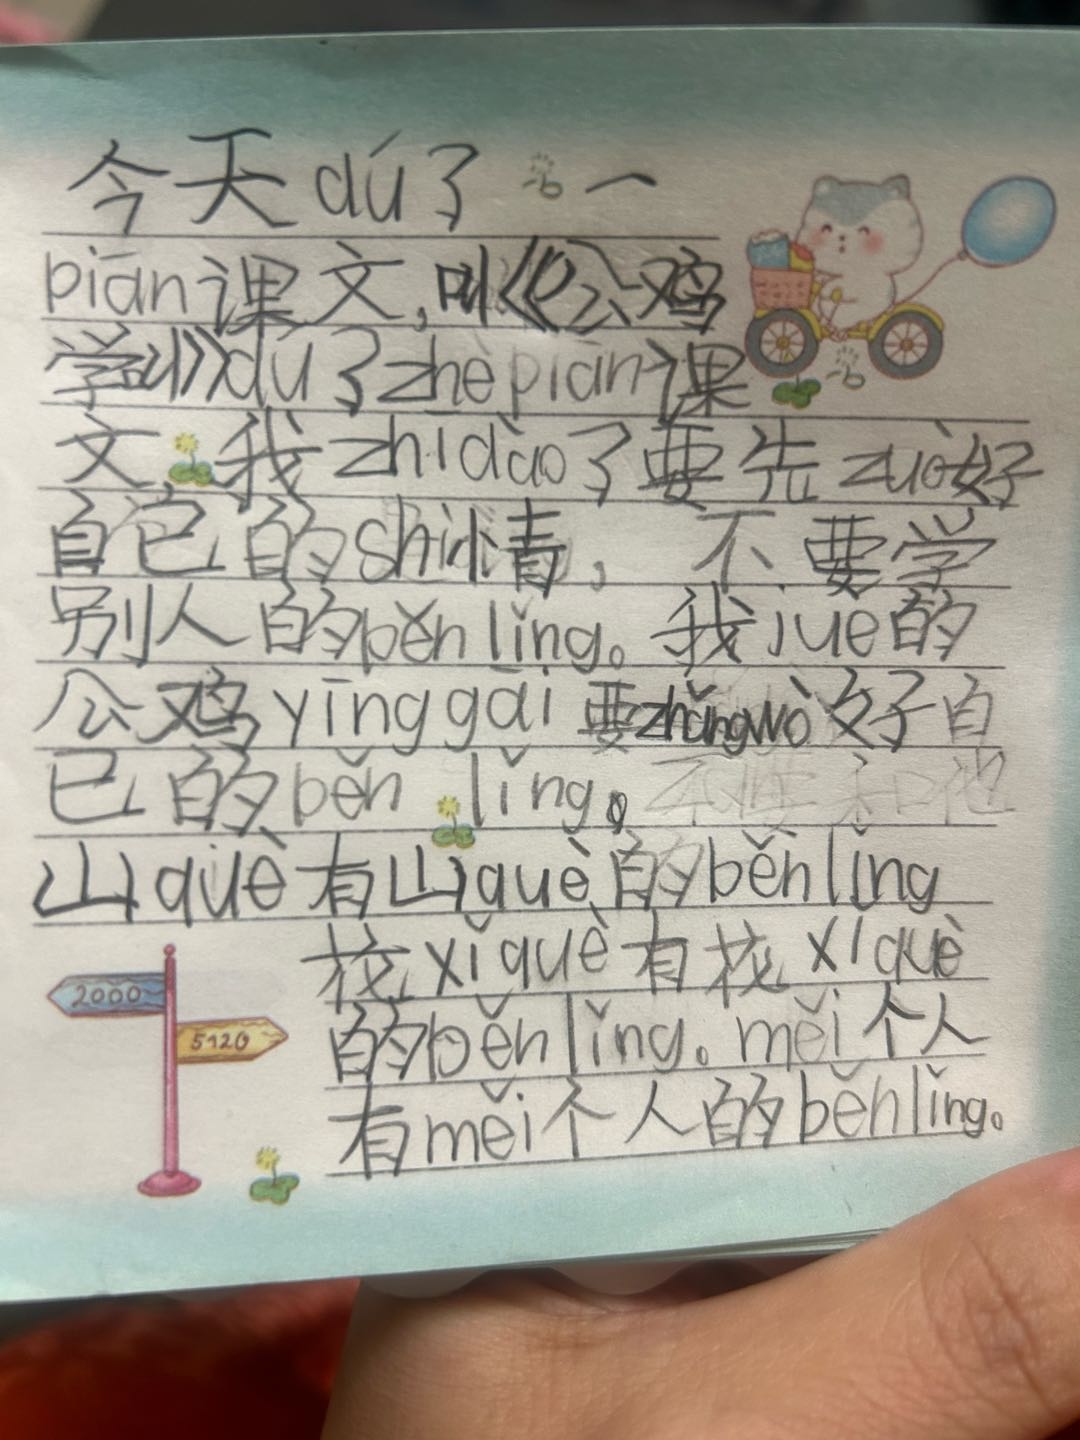 今天dú了一
piān课文,叫《公鸡
学山》dú了zhè piān课
文 我zhīdào了要先zuò好
自己的shì情，不要学
别人的běn lǐng。我jue的
公鸡yīnggāi要zhǎngwò好自
己的běn lǐng。
山què有山què的běnlǐng
xǐquè有 xǐquè
的běn lǐng。měi个人
有měi个人的běnlǐng。
2000
5120